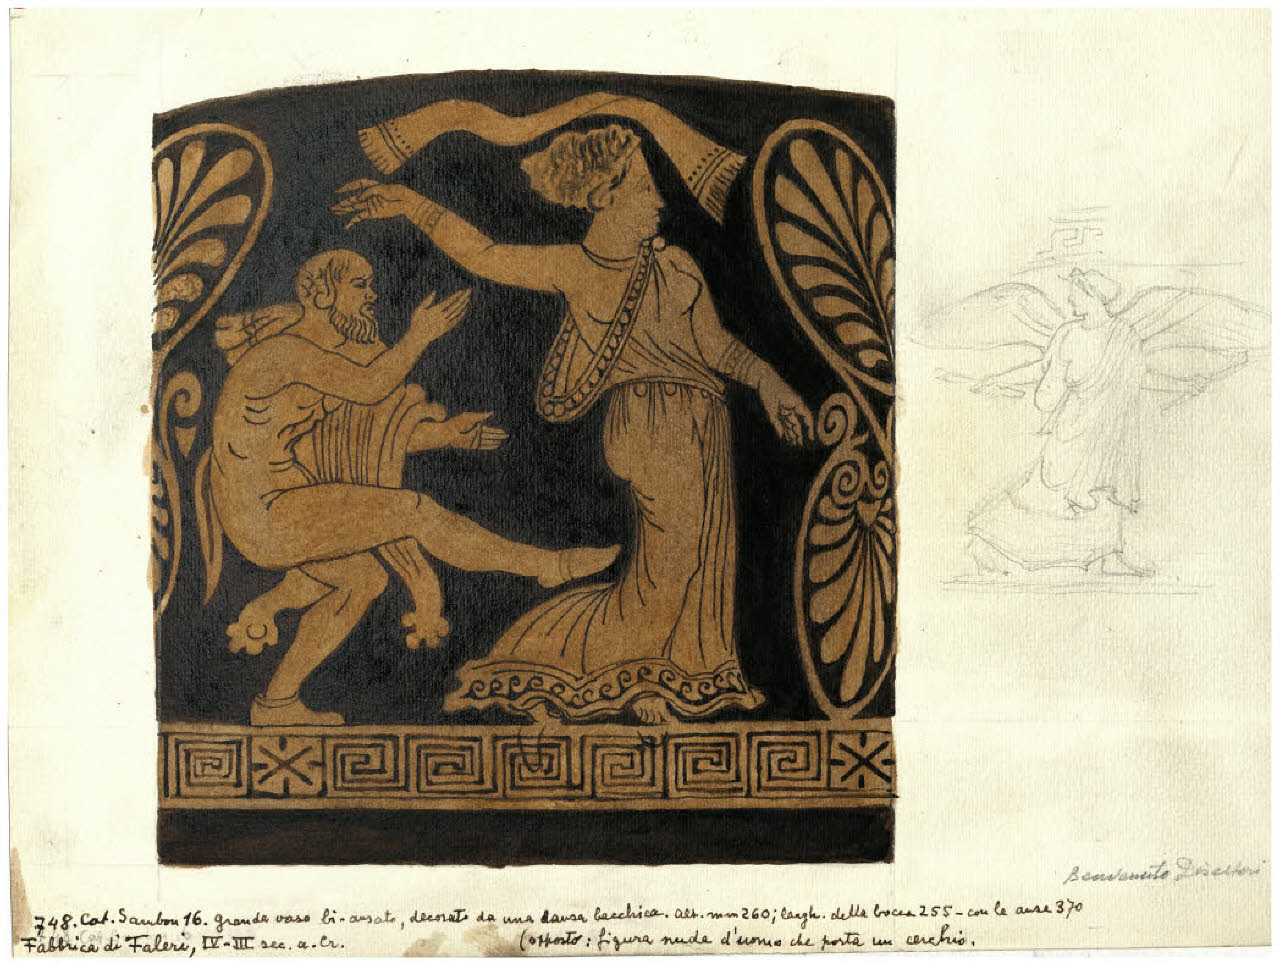 Benvenuto Disertori
748. Cat. Sambon 16. Grande vaso bi-ansato, decorato da una danza bacchica. Alt. mm 260; largh. della bocca 255 - con le anse 370
Fabbrica di Faleri, IV-III sec. a. Cr. (opposto: figura nuda d'uomo che porta un cerchio.